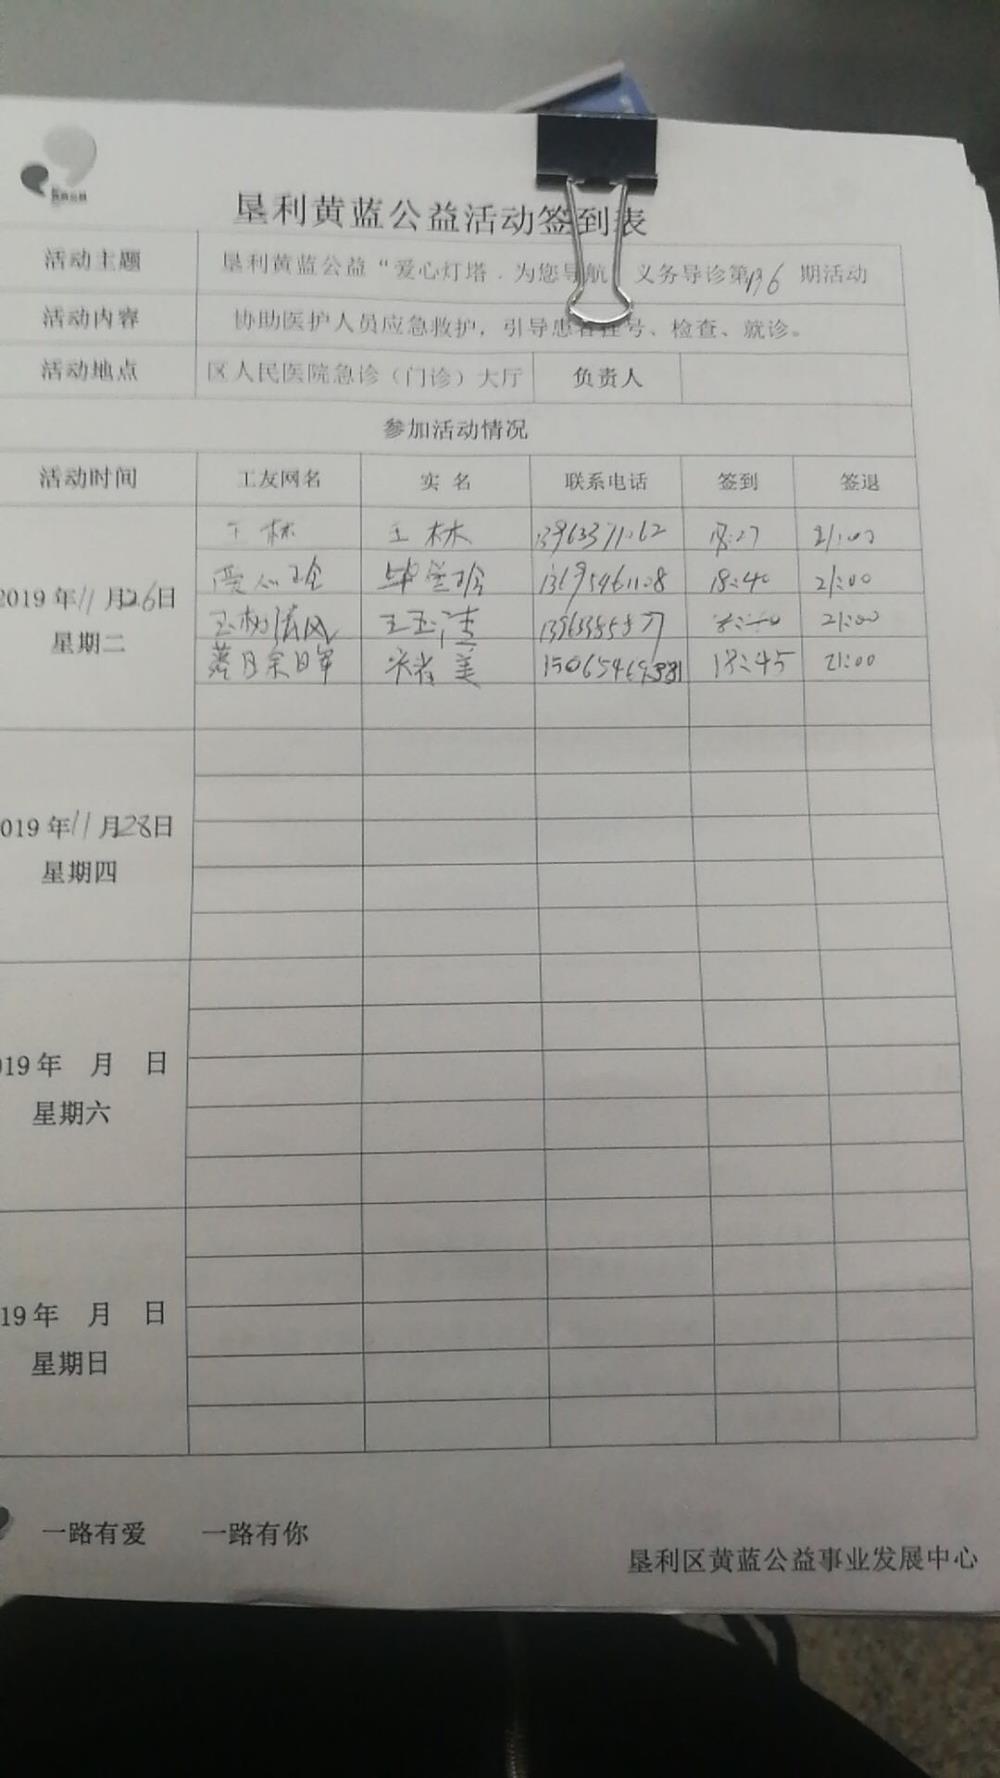 垦利黄蓝公益活动签到表
活动主题 垦利黄蓝公益“爱心灯塔.为您导航 义务导诊第 期活动
活动内容 协助医护人员应急救护，引导患者挂号、检查、就诊。
活动地点 区人民医院急诊（门诊）大厅 负责人
参加活动情况
活动时间 工友网名 实 名 联系电话 签到 签退
王林 王林 18:27 21:00
18:40 21:00
2019年11月26日
星期二
玉树清风 王玉洁 21:00
美 18:45 21:00
019年11月28日
星期四
19年 月 日
星期六
19年 月 日
星期日
一路有爱 一路有你
垦利区黄蓝公益事业发展中心